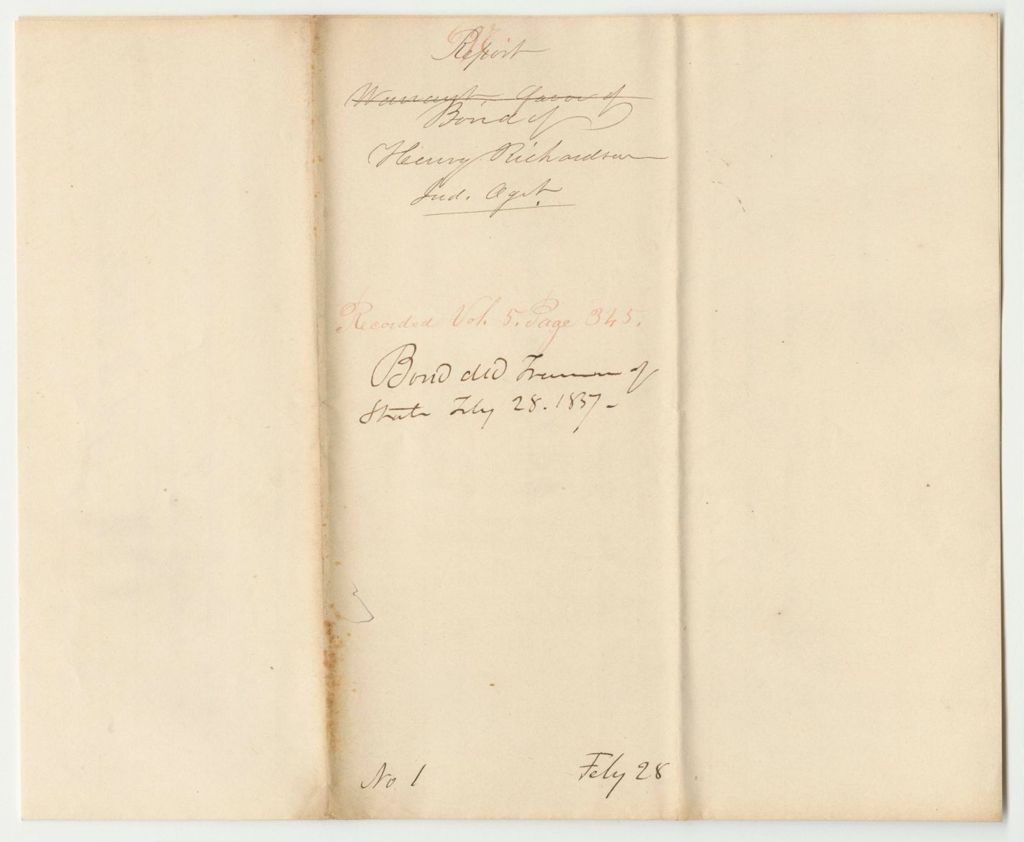 Report
Warrant, favor of
Bond of
Henry Richardson
Ind. Agt.
Recorded Vol. 5. Page 345.
Bond dld Treasurer of
State Feby 28. 1837.
No 1
Feby 28